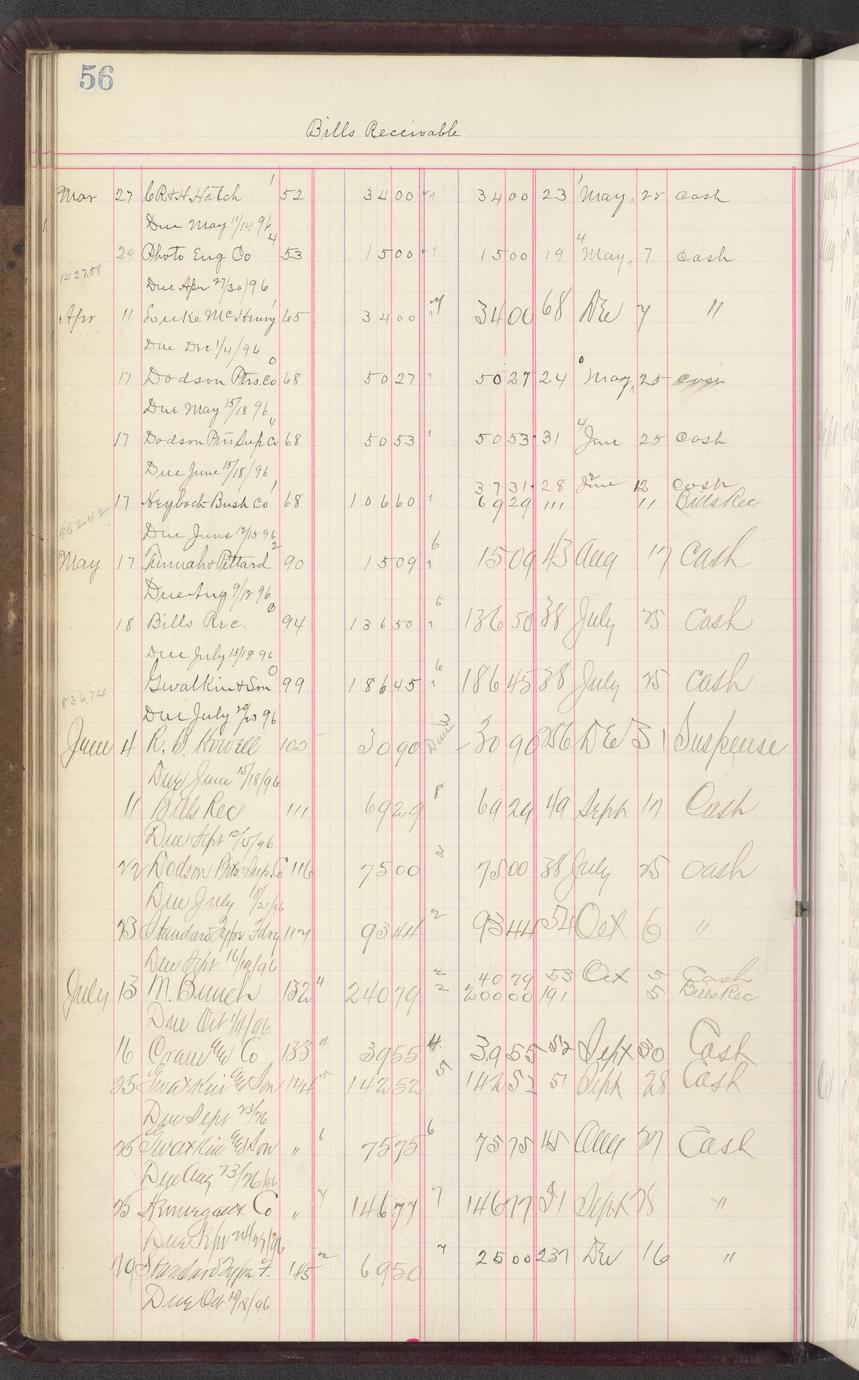 56
Bills Receivable
Mar 27 C R & H Hatch 52 34 00 34 00 23 May 25 Cash
Due May 11/14 96
29 Photo Eng Co 53 15 00 15 00 19 May 7 Cash
1427.58
Due Apr 27/30/96
Apr 11 Luke McHenry 65 34 00 34 00 68 Dec 7 "
Due Dec 1/4/96
17 Dodson Ptrs Co 68 50 27 50 27 24 May 25
Due May 15/18 96
17 Dodson Ptrs Sup Co 68 50 53 50 53 31 June 25 Cash
Due June 15/18/96
37 31 28 June 12 Cash
17 Heybach Bush Co 68 106 60 69 29 111 11 Bills Rec
96242
Due June 12/15 96
May 17 90 15 09 15 09 43 Aug 17 Cash
Due Aug 9/12 96
18 Bills Rec. 94 136 50 136 50 38 July 25 Cash
Due July 15/18 96
Gwalkin & Son 99 186 45 186 45 38 July 25 Cash
836.74
Due July 20/23 96
June 4 R. B. Howell 105 30 90 30 90 256 Dec 31 Suspense
Due June 15/18/96
11 Bills Rec 111 69 29 69 29 49 Sept 17 Cash
Due Sept 12/15/96
22 Dodson Ptrs Sup. Co 116 75 00 75 00 38 July 25 Cash
Due July 18/21/96
23 Standard Type Fdry 117 93 44 93 44 54 Oct 6 "
Due Sept 16/19/96
40 79 53 Oct 5 Cash
July 13 M. Bunch 132 240 79 200 00 191 5 Bills Rec
Due Oct 1/4/96
16 Crane & Co 133 39 55 39 55 52 Sept 30 Cash
23 & Son 144 142 52 142 52 51 Sept 28 Cash
Due Sept 23/26
25 & Son " 75 75 75 75 45 Aug 27 Cash
Due Aug 23/26/96
25 Co " 146 77 146 77 51 Sept 28 "
Due Sept 24/27/96
Standard Type F. 145 69 50 25 00 237 Dec 16 "
Due Oct 15/18/96